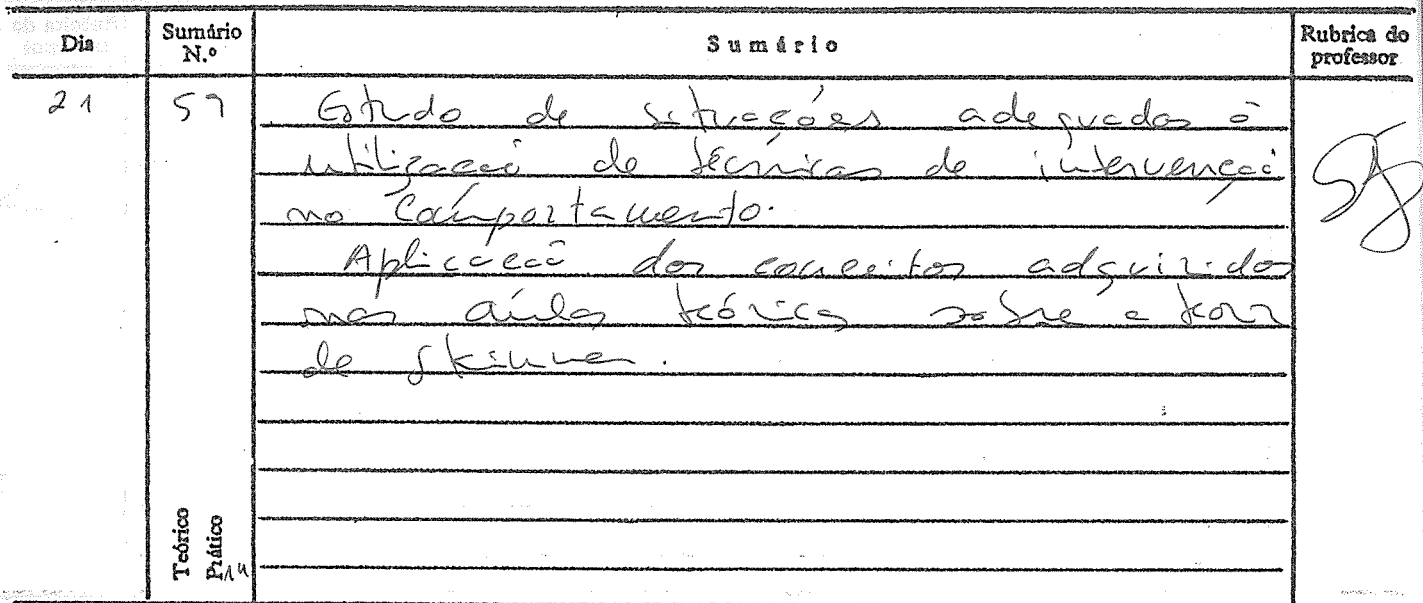 Dia
Sumário N.º
Sumário
Rubrica do professor
21
57
Estudo de situações adequadas à
utilização de técnicas de intervenção
no Comportamento.
Aplicação dos conceitos adquiridos
nas aulas teóricas sobre a teoria
de Skinner.
Teórico
Prático